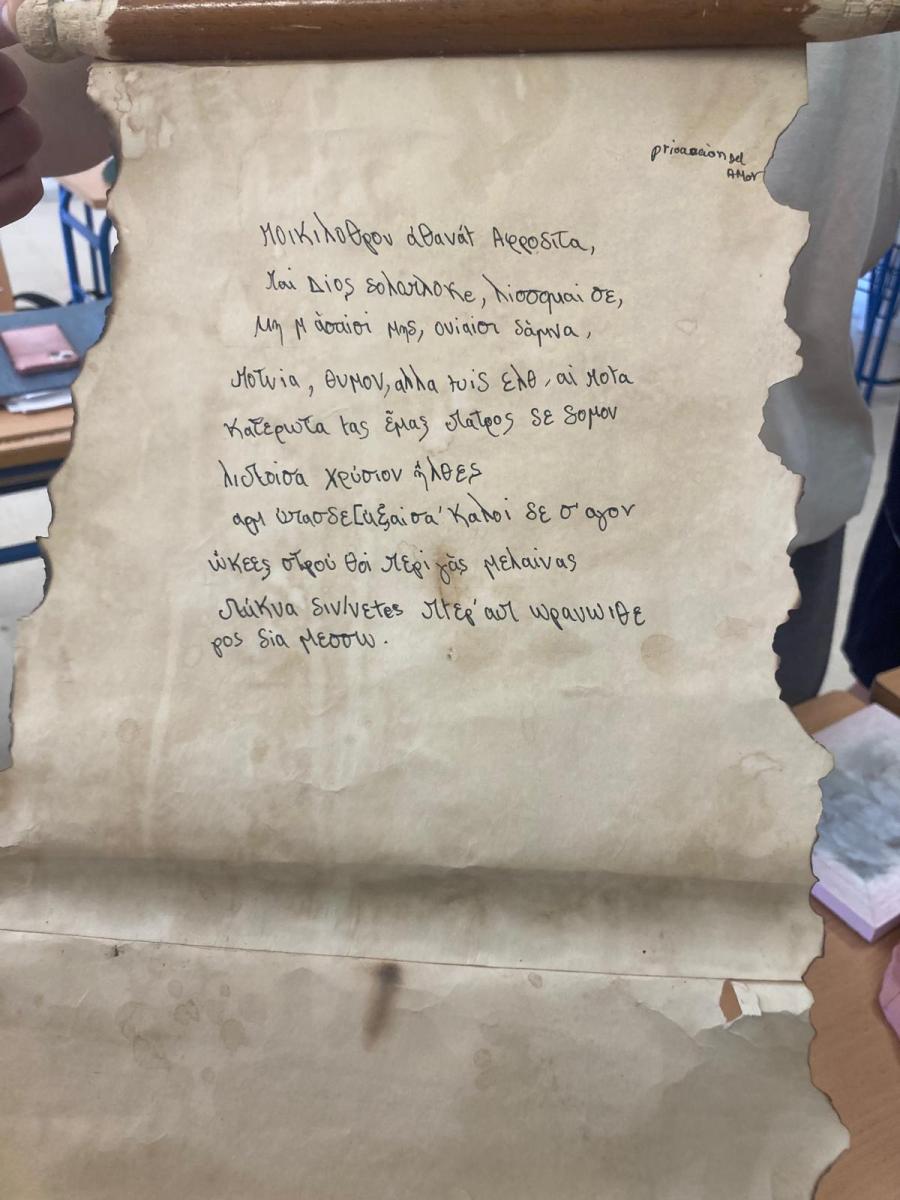 del
AMor
Ποικιλοθρου άθανάτ Αφροδιτα,
παι Διος δολοπλοκε, λισσομαι σε,
Μη μ άσαισι μηδ, ονιαισι δάμνα,
ποτνια, θυμον, αλλα τυις ελθ, αἰ ποτα
κατέρωτα τας ἔμας πατρος δε δομον
λιποισα χρύσιον ἦλθες
αρμ ὐπασδε[υξαισα' καλοι δε σ' αγον
ὠκεες στρού θοι περι γᾶς μελαινας
πύκνα διν/νετες πτερ' απ ωρανωιθε
ρος δια μεσσω.